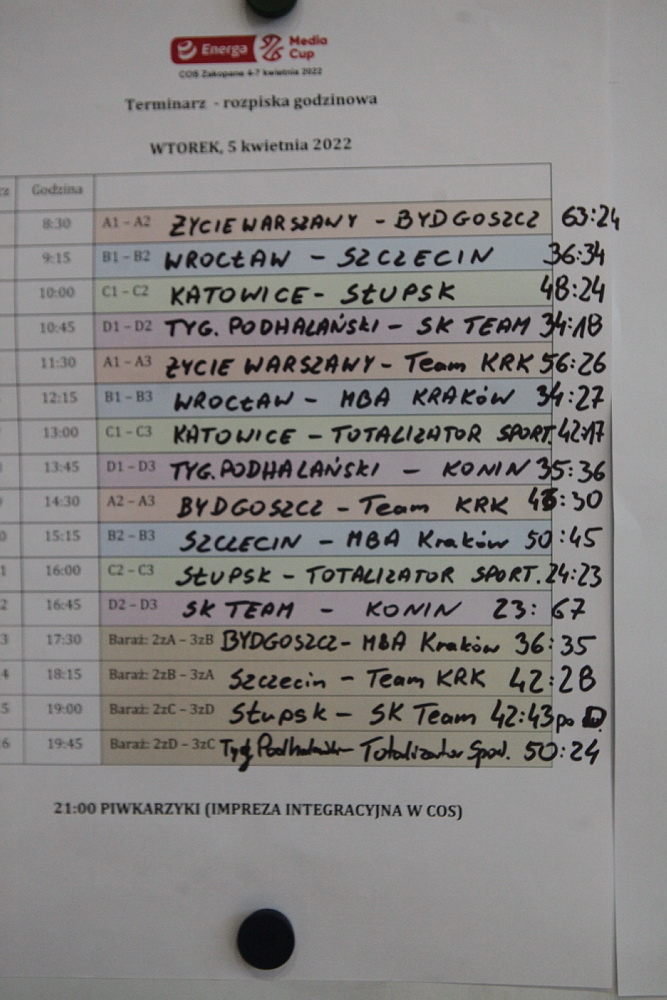 Energa Media Cup
COS Zakopane 4-7 kwietnia 2022
Terminarz - rozpiska godzinowa
WTOREK, 5 kwietnia 2022
Godzina
8:30 A1 – A2 ŻYCIE WARSZAWY - BYDGOSZCZ 63:24
9:15 B1 – B2 WROCŁAW - SZCZECIN 36:34
10:00 C1 – C2 KATOWICE - SŁUPSK 48:24
10:45 D1 – D2 TYG. PODHALAŃSKI - SK TEAM 34:18
11:30 A1 – A3 ŻYCIE WARSZAWY - Team KRK 56:26
12:15 B1 – B3 WROCŁAW - MBA KRAKÓW 34:27
13:00 C1 – C3 KATOWICE - TOTALIZATOR SPORT. 42:17
13:45 D1 – D3 TYG. PODHALAŃSKI - KONIN 35:36
14:30 A2 – A3 BYDGOSZCZ - Team KRK :30
15:15 B2 – B3 SZCZECIN - MBA Kraków 50:45
16:00 C2 – C3 SŁUPSK - TOTALIZATOR SPORT. 24:23
16:45 D2 – D3 SK TEAM - KONIN 23:67
3 17:30 Baraż: 2zA – 3zB BYDGOSZCZ - MBA Kraków 36:35
4 18:15 Baraż: 2zB – 3zA Szczecin - Team KRK 42:28
5 19:00 Baraż: 2zC – 3zD Słupsk - SK Team 42:43 po D
6 19:45 Baraż: 2zD – 3zC Totalizator 50:24
21:00 PIWKARZYKI (IMPREZA INTEGRACYJNA W COS)